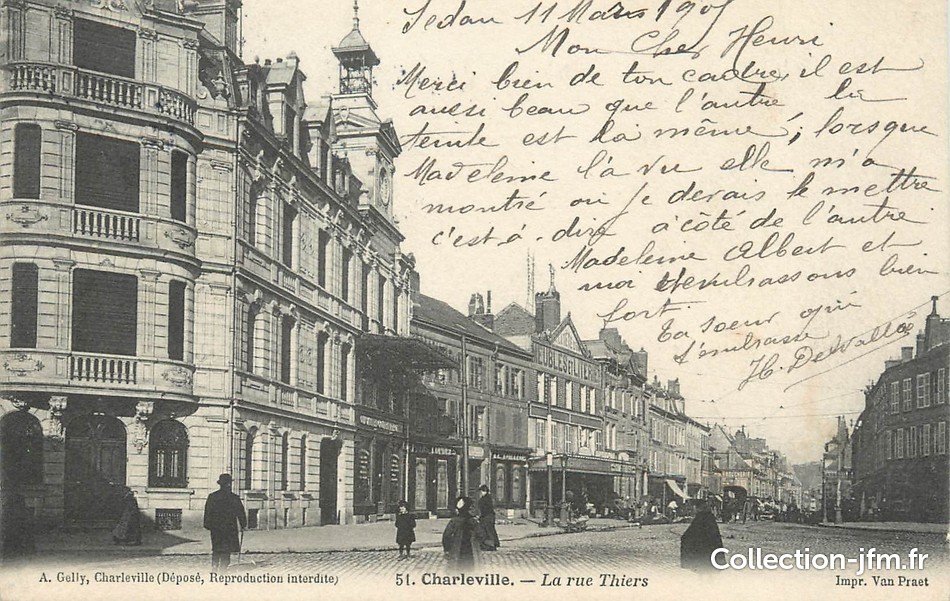 Sedan 11 Mars 190
Mon Cher Henri
Merci bien de ton cadre, il est
aussi beau que l'autre la
teinte est la même, lorsque
Madeleine l'a vu elle m'a
montré où je devais le mettre
c'est-à-dire à côté de l'autre
Madeleine Albert et
moi t'embrassons bien
fort. Ta soeur qui
t'embrasse
H. Delvallé
51. Charleville. — La rue Thiers
A. Gelly, Charleville (Déposé, Reproduction interdite)
Impr. Van Praet
Collection-jfm.fr